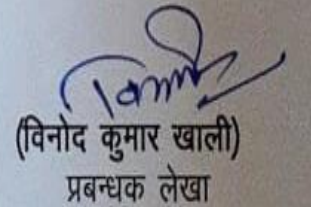 (विनोद कुमार खाली)
प्रबन्धक लेखा